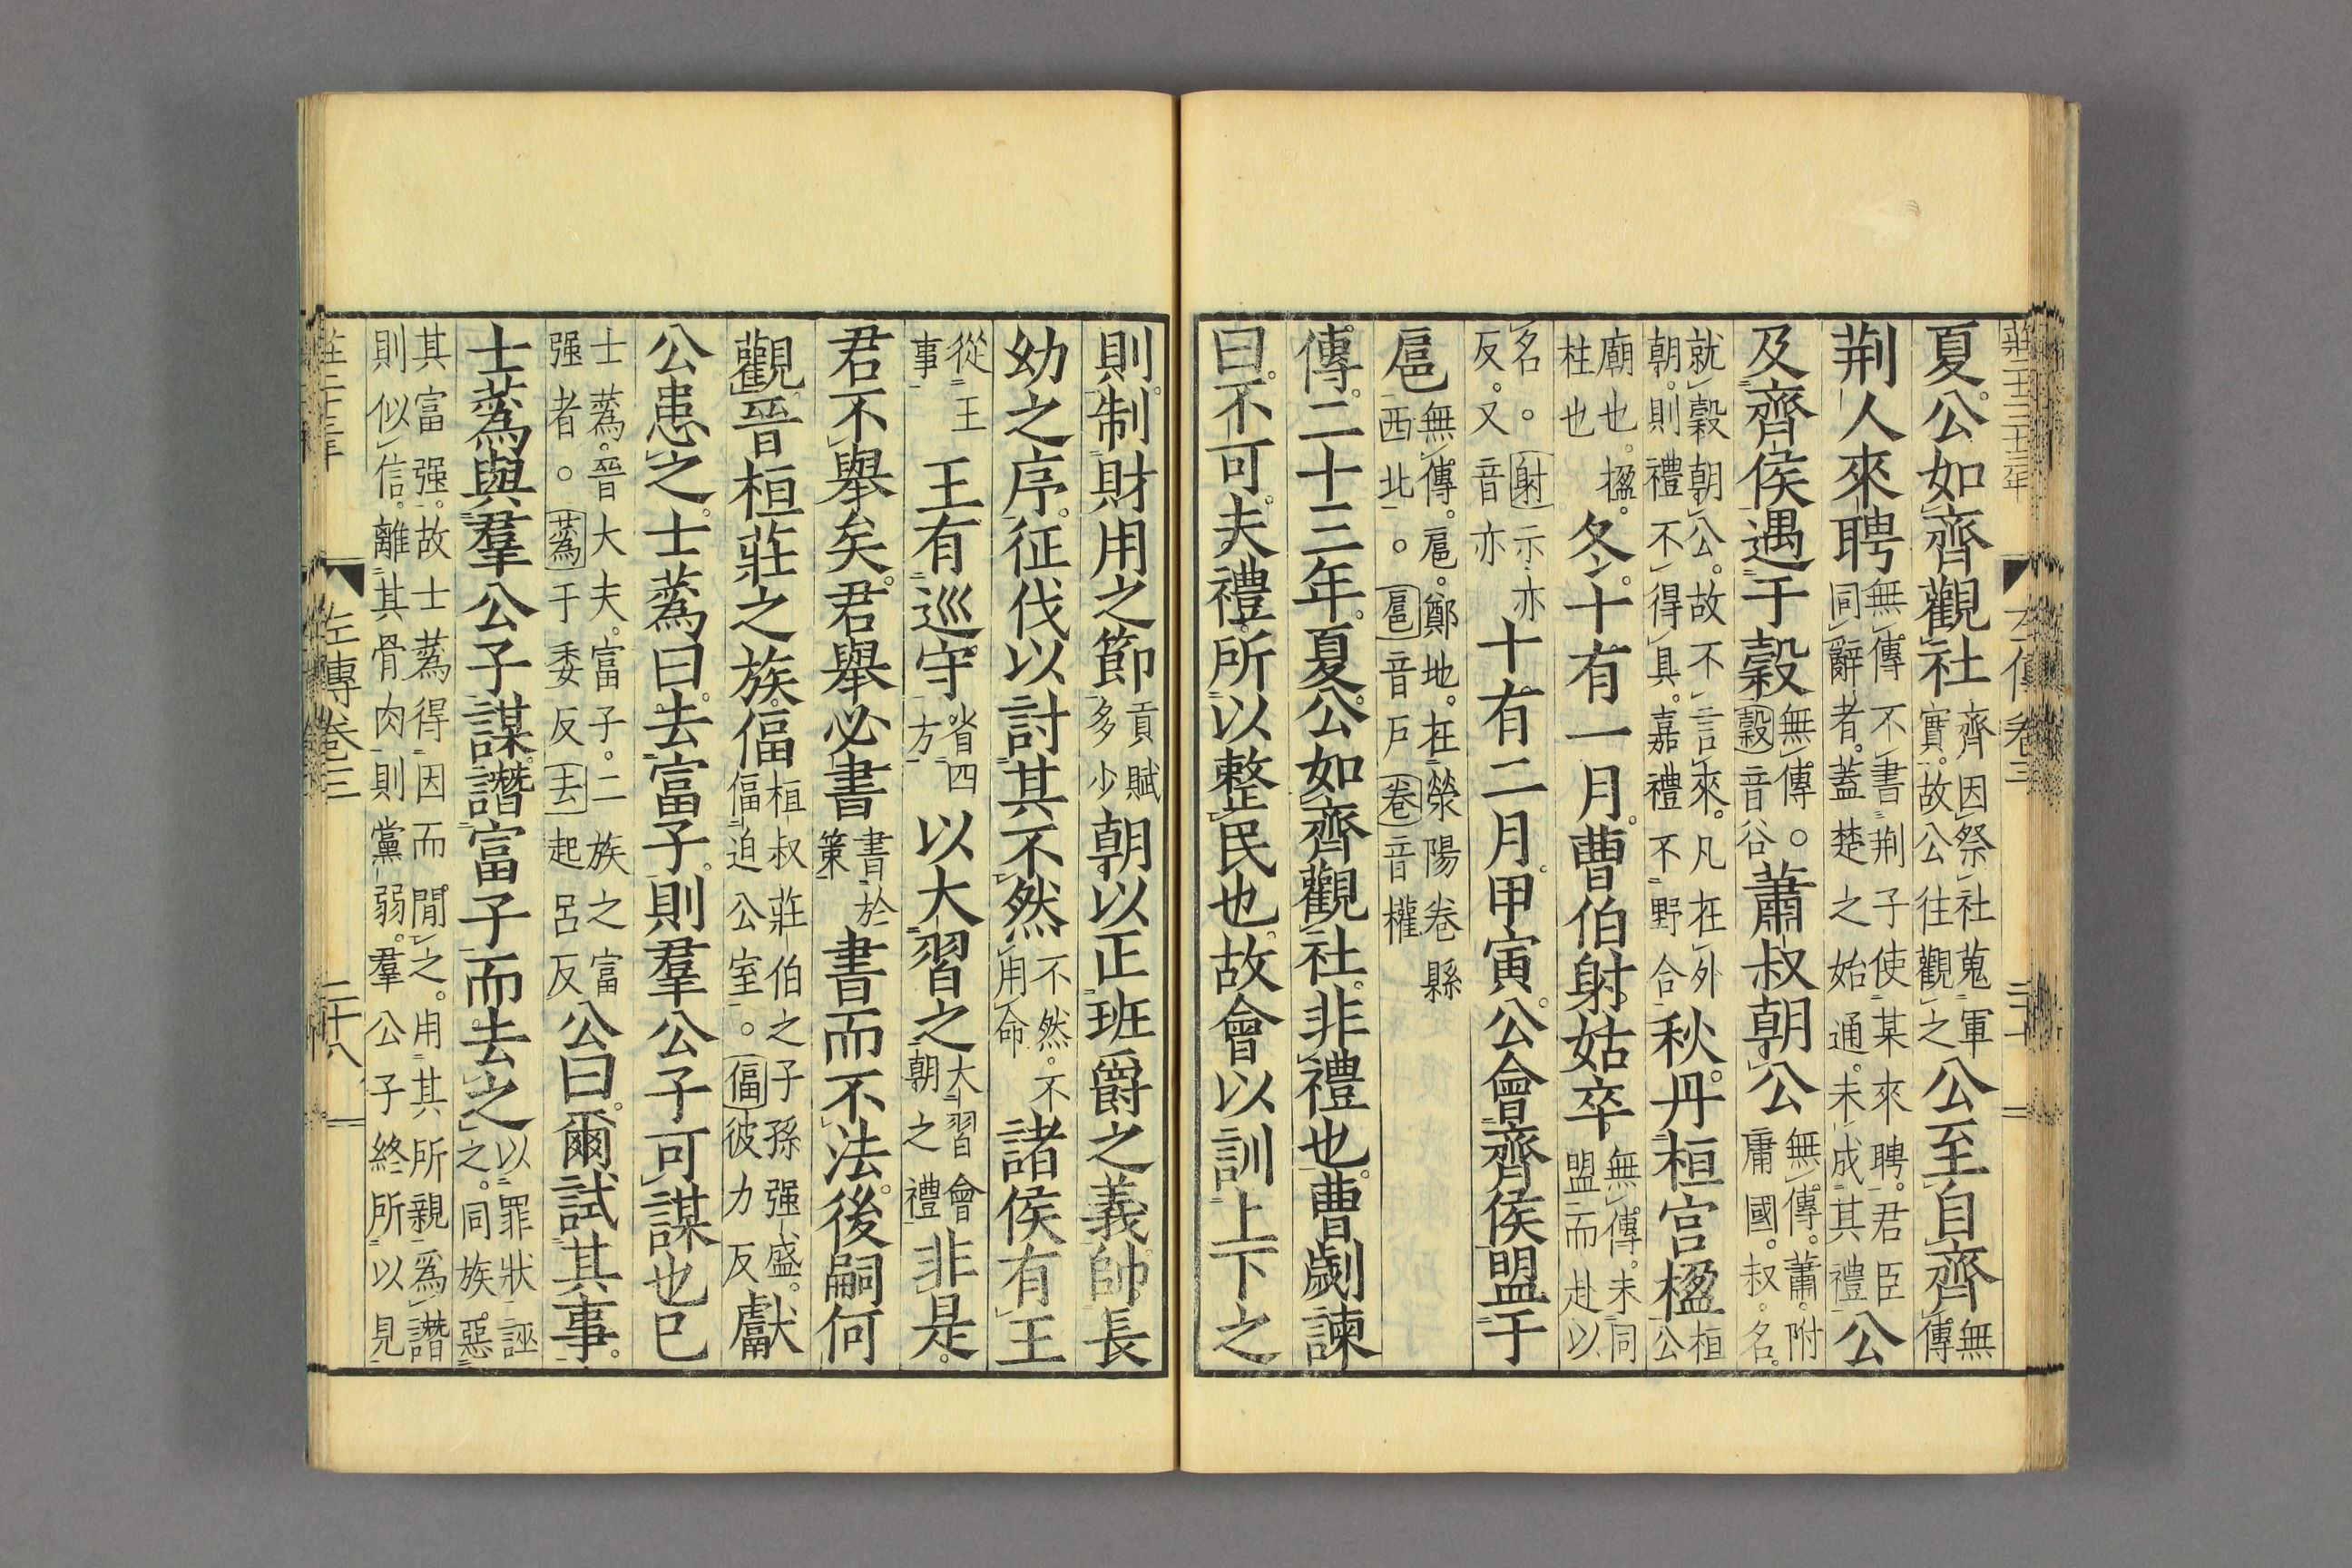 莊二十三年
左傳卷三
夏。公如齊觀社齊因祭社蒐軍實。故公往觀之公至自齊無傳
荆人來聘無傳不書荆子使某來聘。君臣同辭者。蓋楚之始通。未成其禮公
及齊侯遇于穀無傳。穀音谷蕭叔朝公無傳。蕭。附庸國。叔。名。
就穀朝公。故不言來。凡在外朝。則禮不得具。嘉禮不野合秋。丹桓宮楹桓公
廟也。楹。柱也冬。十有一月。曹伯射姑卒無傳。未同盟而赴以
名。射示亦反。又音亦十有二月。甲寅。公會齊侯盟于
扈無傳。扈。鄭地。在滎陽卷縣西北。扈音戶卷音權
傳。二十三年。夏。公如齊觀社。非禮也。曹劌諫
曰。不可。夫禮。所以整民也。故會以訓上下之
則。制財用之節貢賦多少朝以正班爵之義。帥長
幼之序。征伐以討其不然不然。不用命諸侯有王
從王事王有巡守。省四方以大習之大習會朝之禮非是。
君不舉矣。君舉必書書於策書而不法。後嗣何
觀。晉桓莊之族偪桓叔莊伯之子孫强盛。偪迫公室。偪彼力反獻
公患之。士蒍曰。去富子。則羣公子可謀也已
士蒍。晉大夫。富子。二族之富强者。蒍于委反去起呂反公曰。爾試其事。
士蒍與羣公子謀。譖富子而去之以罪狀誣之。同族。惡
其富强。故士蒍得因而閒之。用其所親爲譖則似信。離其骨肉則黨弱。羣公子終所以見
莊二十三年
左傳卷三
二十八